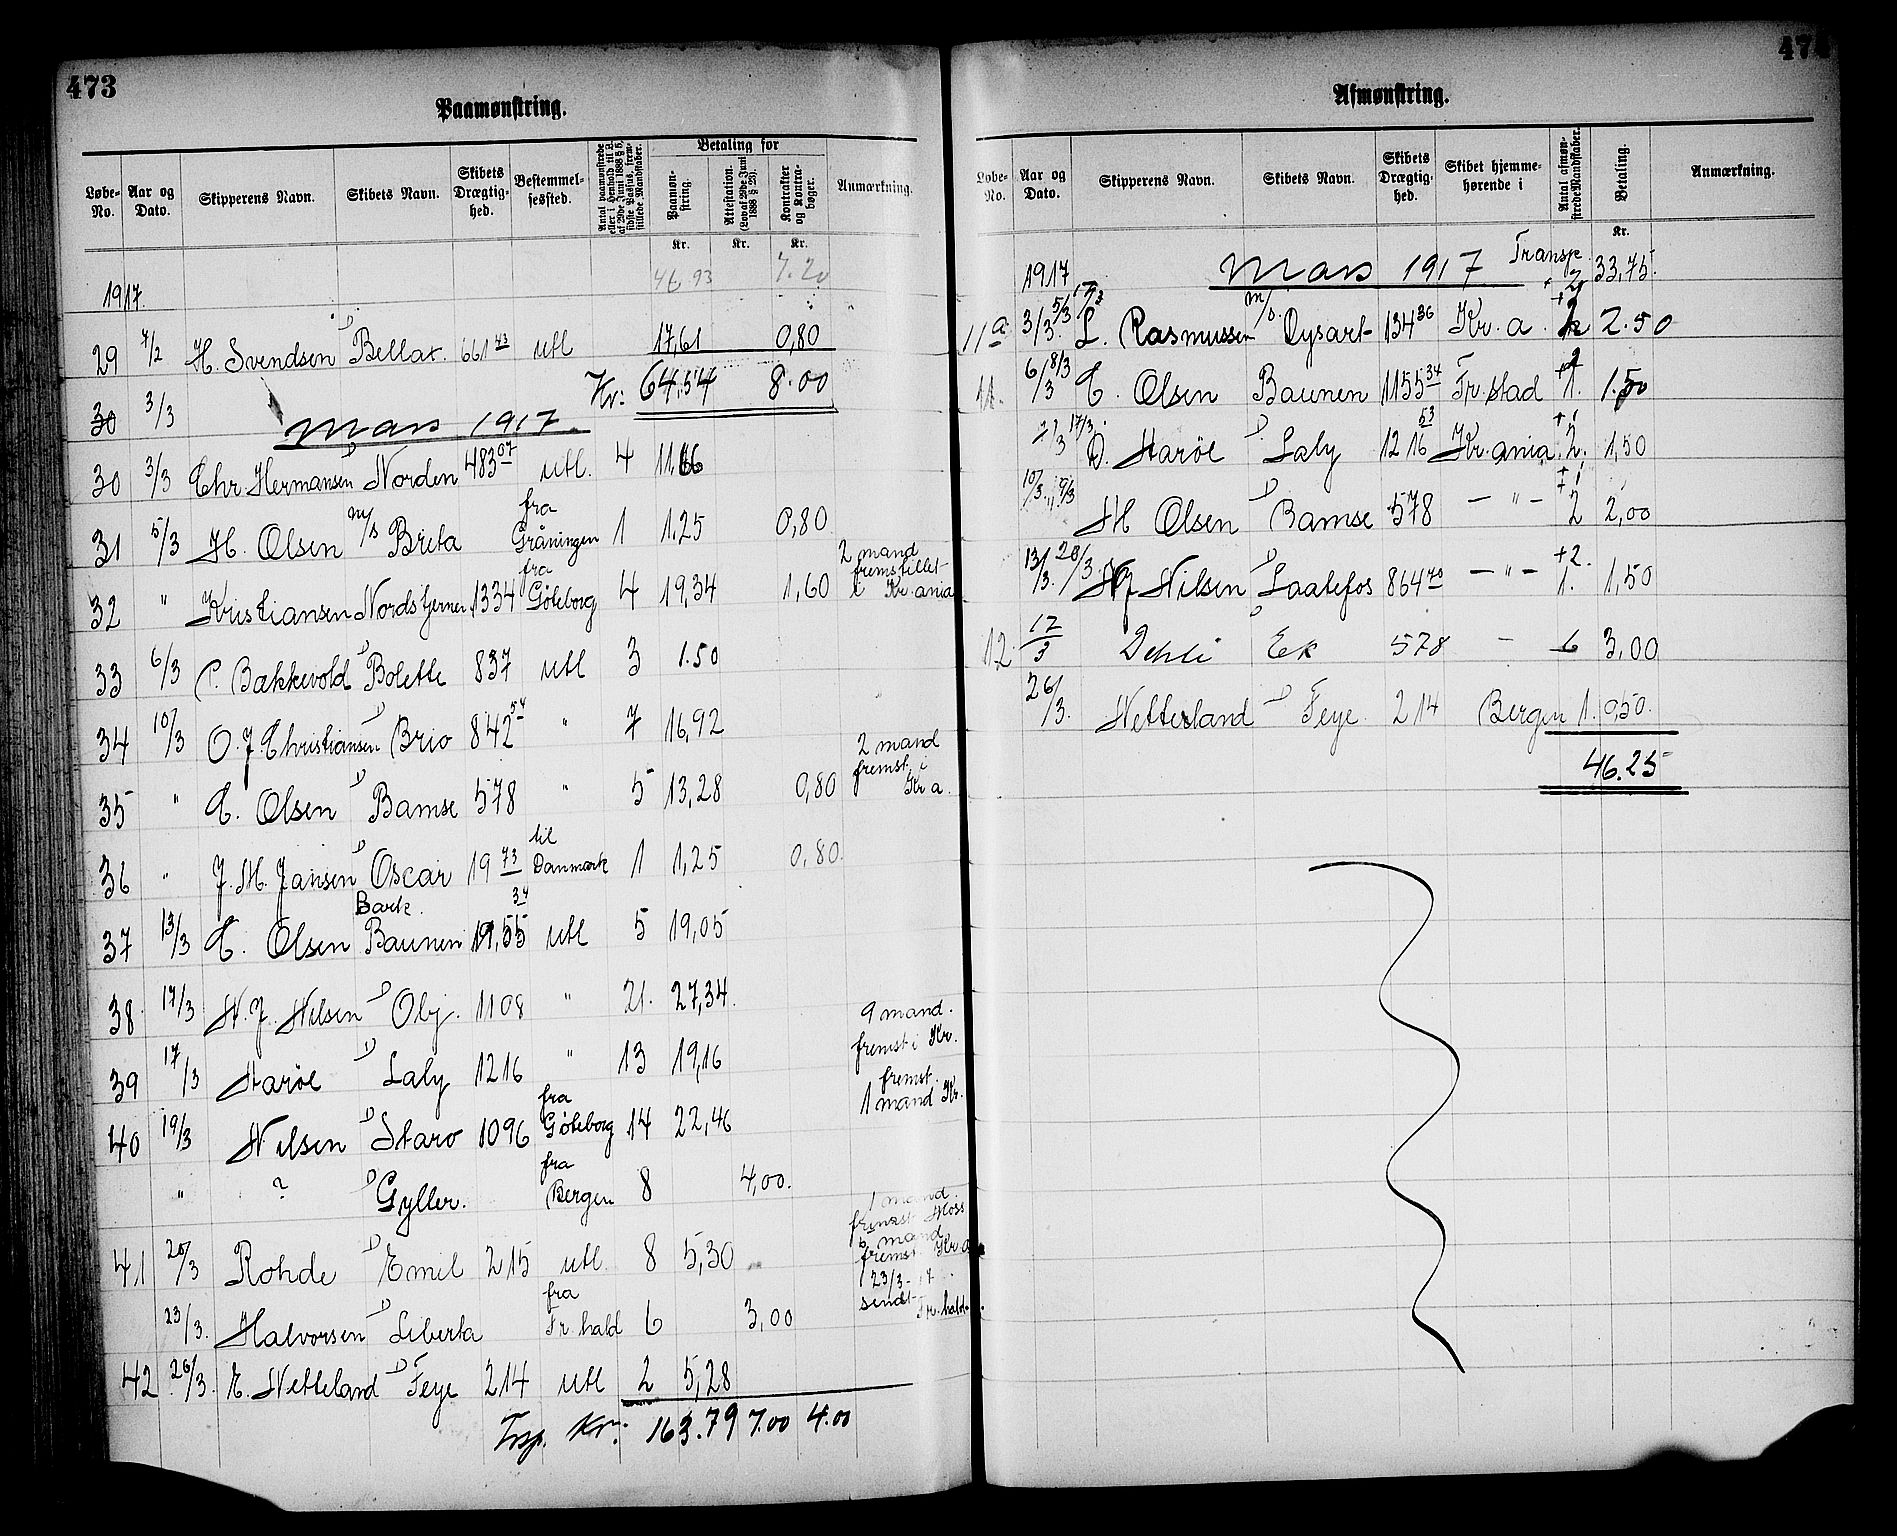 473
Paamønstring.
Løbe-No. Aar og Dato. Skipperens Navn. Skibets Navn. Skibets Drægtighed. Bestemmelsessted. Betaling for Paamønstring. Attestation. (Lov af 29de Juni 1888 § 28). Kontrakter og Kontrabøger. Anmærkning.
Kr. Kr. Kr.
46.93 7.20
1917.
29 7/2 H. Svendsen D Bellax 661 43 utl 17,61 0,80
Kr: 64,54 8.00
30 3/3
Mars 1917.
30 3/3 Chr. Hermansen D Norden 483 07 utl. 4 11,66
31 5/3 H. Olsen m/s Breta fra Gråningen 1 1,25 0,80
32 " Kristiansen Nordstjernen 1334 fra Göteborg 4 19,34 1,60 2 mand fremstillet i Kr.ania
33 6/3 C. Bakkevold D Bolette 837 utl 3 1.50
34 10/3 O. J. Christiansen D Brio 842 54 " 7 16,92
35 " C. Olsen D Bamse 578 " 5 13,28 0,80 2 mand fremst. i Kr a.
36 " J. M. Jansen D Oscar 19 73 til Danmark 1 1,25 0,80.
37 13/3 C. Olsen Bark. Baunen 1155 34 utl 5 19,05
38 17/3 N. J. Nilsen D Obj. 1108 " 21. 27,34.
39 17/3 Harøe D Laly 1216 " 13 19,16 9 mand. fremst i Kr.
40 19/3 Nilsen D Haro 1096 fra Göteborg 14 22,46 fremst. 1 mand Kr.
" ? D Gyller. fra Bergen 8 4,00.
41 20/3 Rohde D Emil 215 utl. 8 5,30 1 mand. fremst Moss mand fremst Kr a
23/3. Halvorsen D Liberta fra Fr.hald 6 3,00 23/3-17 sendt Fr.hald.
42 26/3. E. Netteland D Feye 214 utl 2 5,28
Trsp. Kr: 163.79 7.00 4.00
Afmønstring.
Løbe-No. Aar og Dato. Skipperens Navn. Skibets Navn. Skibets Drægtighed. Skibet hjemmehørende i Antal afmønstrede Mandskaber. Betaling. Anmærkning.
Kr.
1917 Mars 1917 Transp. 33,75.
11 a 3/3 5/3 17/3 L. Rasmussen m/s Dysart 134 36 Kr. a. 2.50
11. 6/3 8/3 C. Olsen Baunen 1155 34 Fr.stad +1. 1.50
17/3. D. Harøe D Laly 1216 53 Kr.ania 2. 1,50
10/3. 9/3 M Olsen D Bamse 578 — " — 2 2,00
13/3. 20/3 N J Nilsen D Laatefos 864 70 — " — +2. 1. 1,50
12. 17/3 Dehli D Ek 578 — 6 3,00
26/3. Netterland D Feye. 214 Bergen 1. 0,50.
46.25